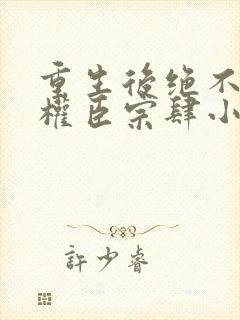 重生後绝不
權臣宗肆小
許少睿